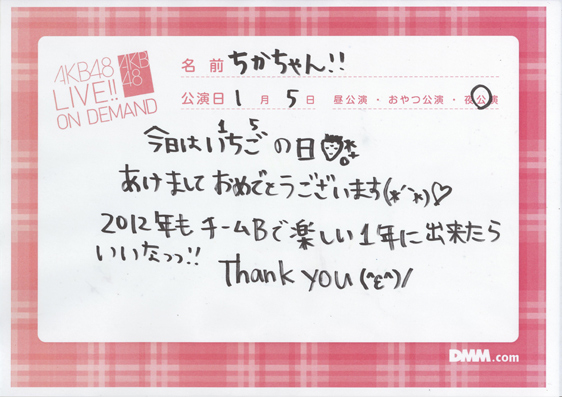 AKB48
LIVE!!
ON DEMAND
AKB
48
名前 ちかちゃん!!
公演日 1月 5日 昼公演・おやつ公演・夜公演
1 5
今日はいちごの日
あけましておめでとうございます(*´`*)♡
2012年もチームBで楽しい1年に出来たら
いいなっっ!!
Thank you (^ε^)/
DMM.com